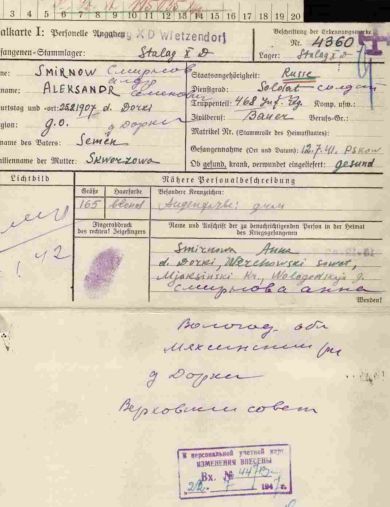 4 5 6 7 8 9 10 11 12 13 14 15 16 17 18 19 20
alkarte I: Personelle Angaben X D Wietzendorf Beschriftung der Erkennungsmarke
Nr. 4360
efangenen-Stammlager: Stalag X D Lager: Stalag X D
me: SMIRNOW Смирнов
ame: ALEKSANDR
Staatsangehörigkeit: Russe
Dienstgrad: Soldat солдат
urtstag und -ort: 25.8.1907 d. Dorki
Truppenteil: 468 Inf. Rg. Komp. usw.:
igion: g.o. д Дорки
Zivilberuf: Bauer Berufs-Gr.:
Matrikel Nr. (Stammrolle des Heimatstaates):
name des Vaters: Semën
Gefangennahme (Ort und Datum): 12.7.41. Pskow
ilienname der Mutter: Skworzowa
Ob gesund, krank, verwundet eingeliefert: gesund
Lichtbild Nähere Personalbeschreibung
Größe Haarfarbe Besondere Kennzeichen:
165 blond
Fingerabdruck
des rechten! Zeigefingers
Name und Anschrift der zu benachrichtigenden Person in der Heimat
des Kriegsgefangenen
Smirnowa Anna
d. Dorki, Werchowski sowet,
Mjaksinski Ra., Wologodskaja g.
Смирнова анна
Wenden!
42
Вологод. обл
Мяксинский рн
д Дорки
Верховский совет
К персональной учетной карт
ИЗМЕНЕНИЯ ВНЕСЕНЫ
Вх. №
22 194